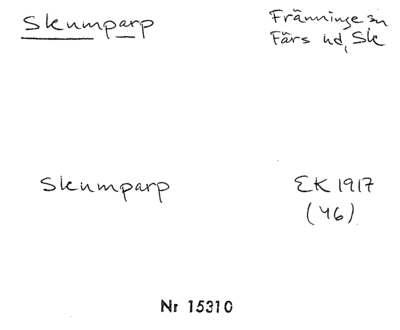 Skumparp
Fränninge sn
Färs hd, Sk
Skumparp
EK 1917
(46)
Nr 15310